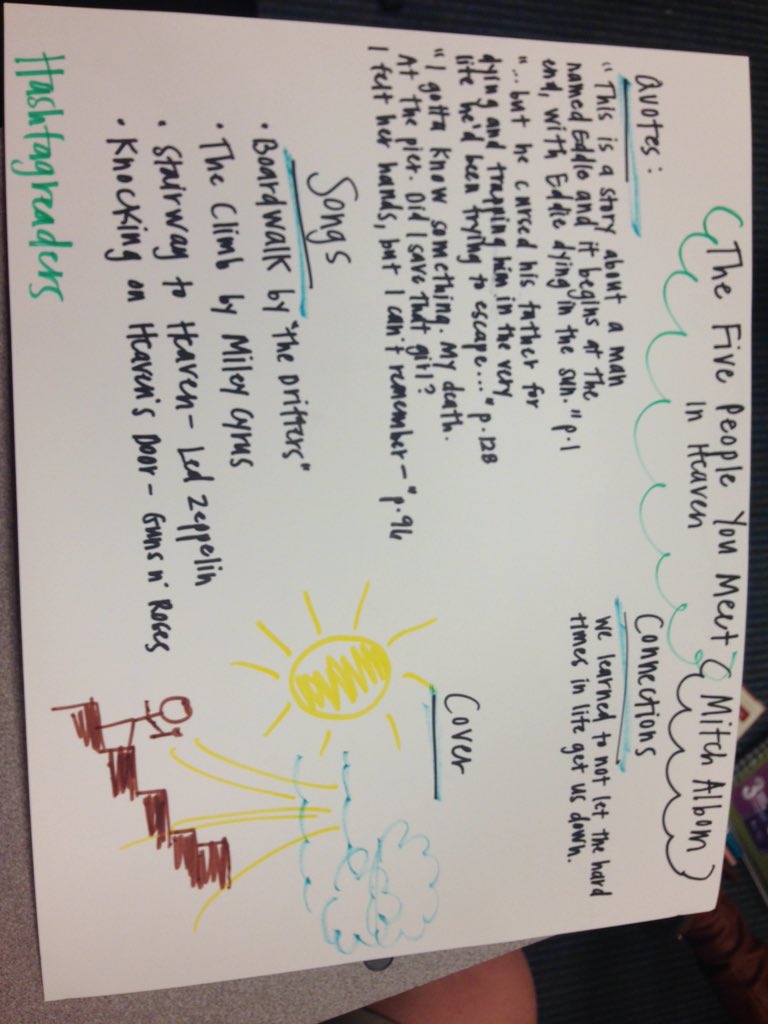 The Five People You Meet
in Heaven
(Mitch Albom)
Quotes:
"This is a story about a man
named Eddie and it begins at the
end, with Eddie dying in the sun." p.1
"...but he cursed his father for
dying and trapping him in the very
life he'd been trying to escape..." p.128
"I gotta know something. My death.
At the pier. Did I save that girl?
I felt her hands, but I can't remember—" p.96
Connections
We learned to not let the hard
times in life get us down.
Songs
• Boardwalk by "The Drifters"
• The Climb by Miley Cyrus
• Stairway to Heaven - Led Zeppelin
• Knocking on Heaven's Door - Guns n' Roses
Cover
Hashtagreaders
3